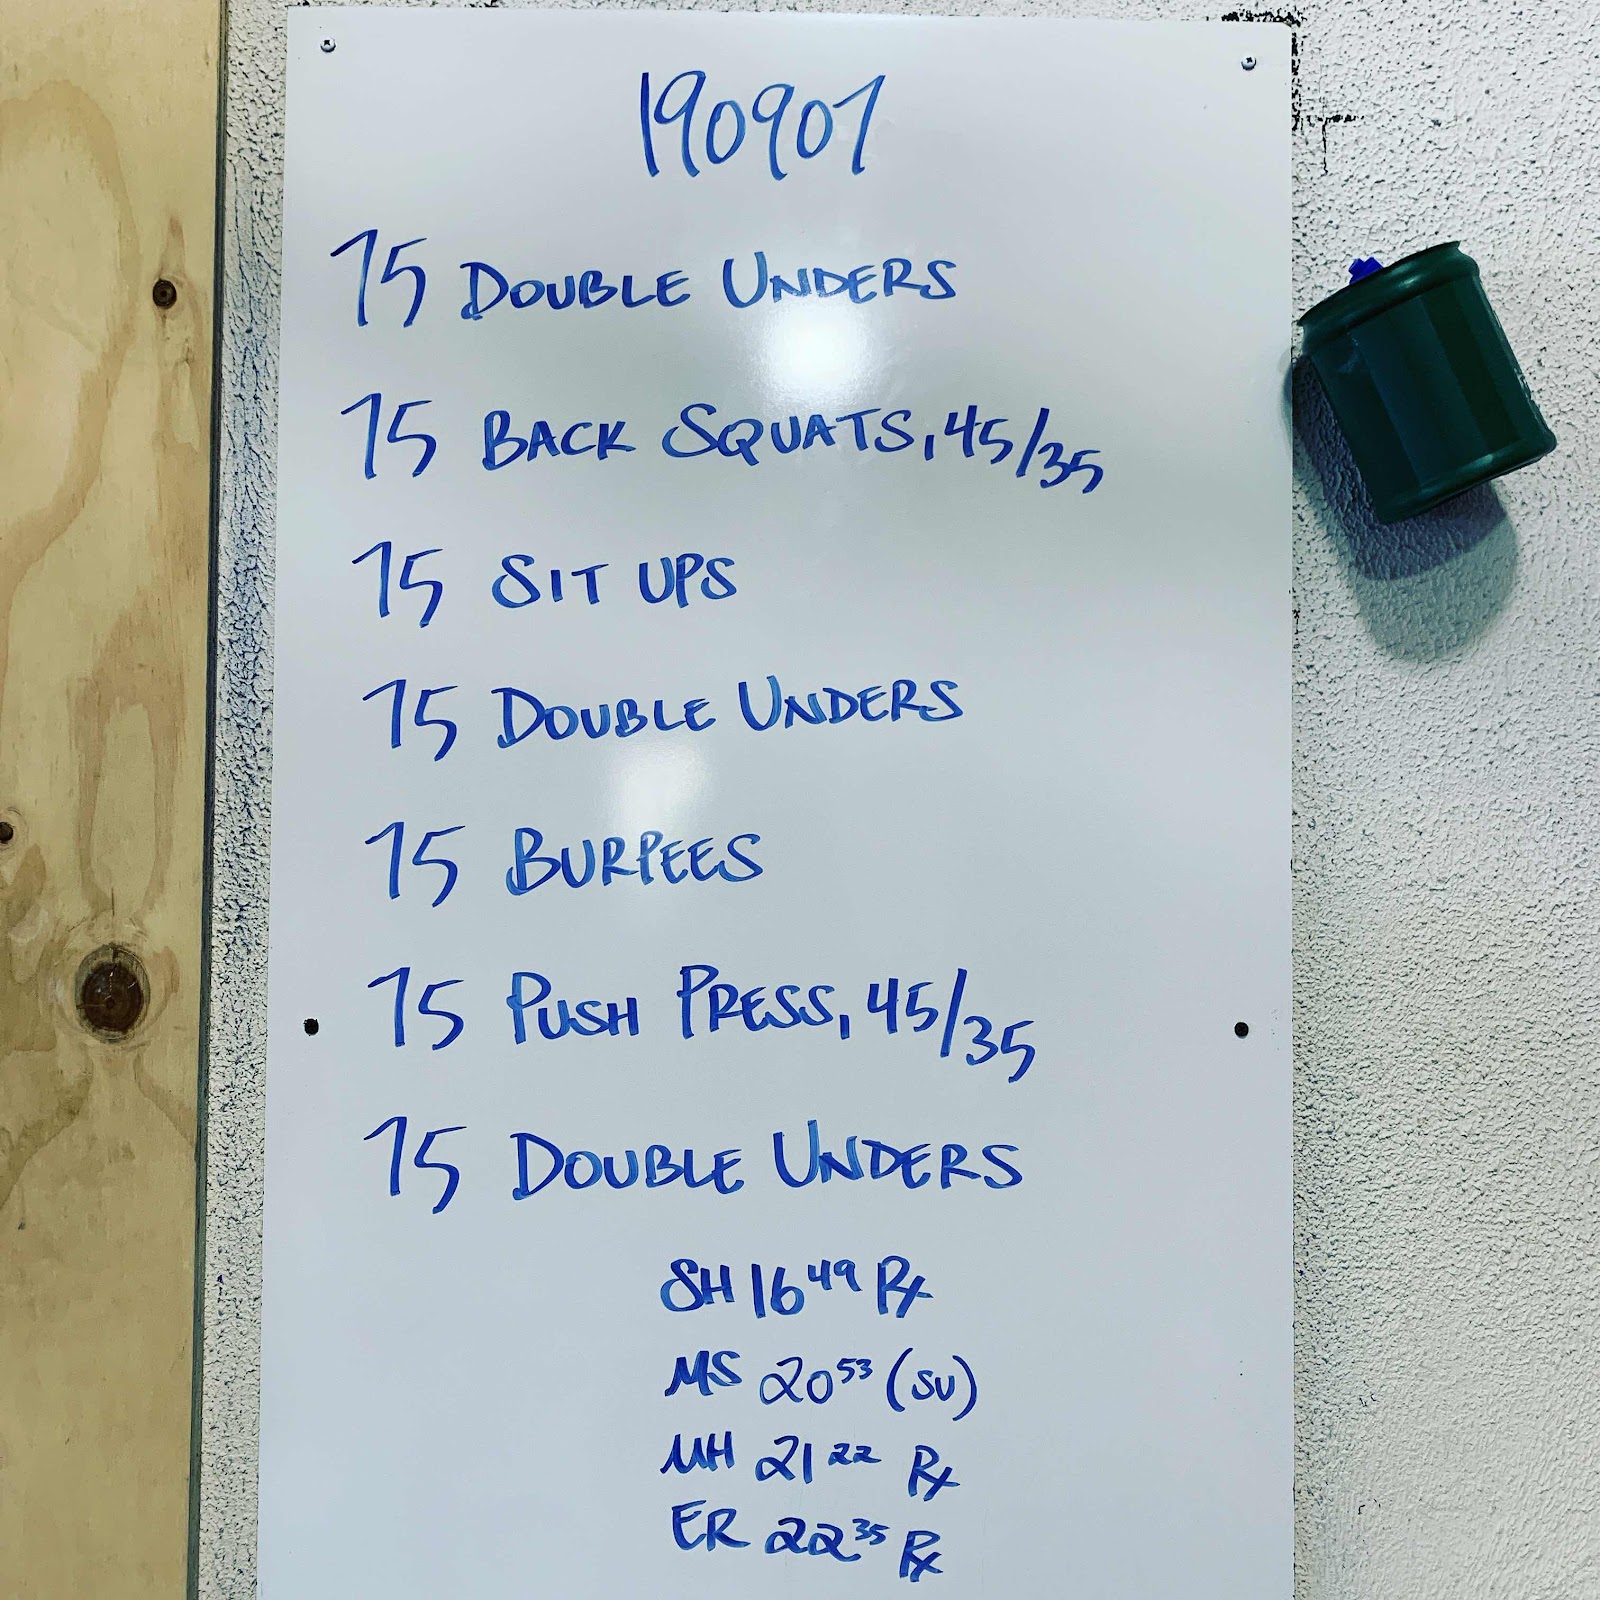 190907
75 DOUBLE UNDERS
75 BACK SQUATS, 45/35
75 SIT UPS
75 DOUBLE UNDERS
75 BURPEES
75 PUSH PRESS, 45/35
75 DOUBLE UNDERS
SH 16 49 Rx
MS 20 53 (SU)
MH 21 22 Rx
ER 22 35 Rx